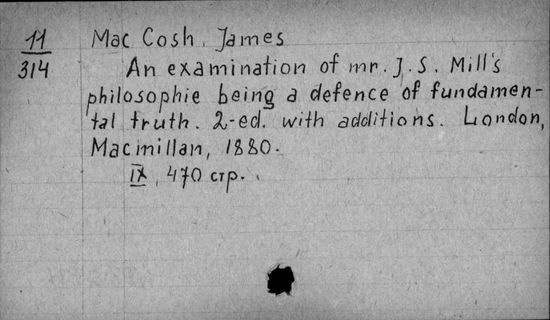 11
314
Mac Cosh, James
An examination of mr. J. S. Mill's
philosophie being a defence of fundamen-
tal truth. 2-ed. with additions. London,
Macmillan, 1880.
IX, 470 стр.